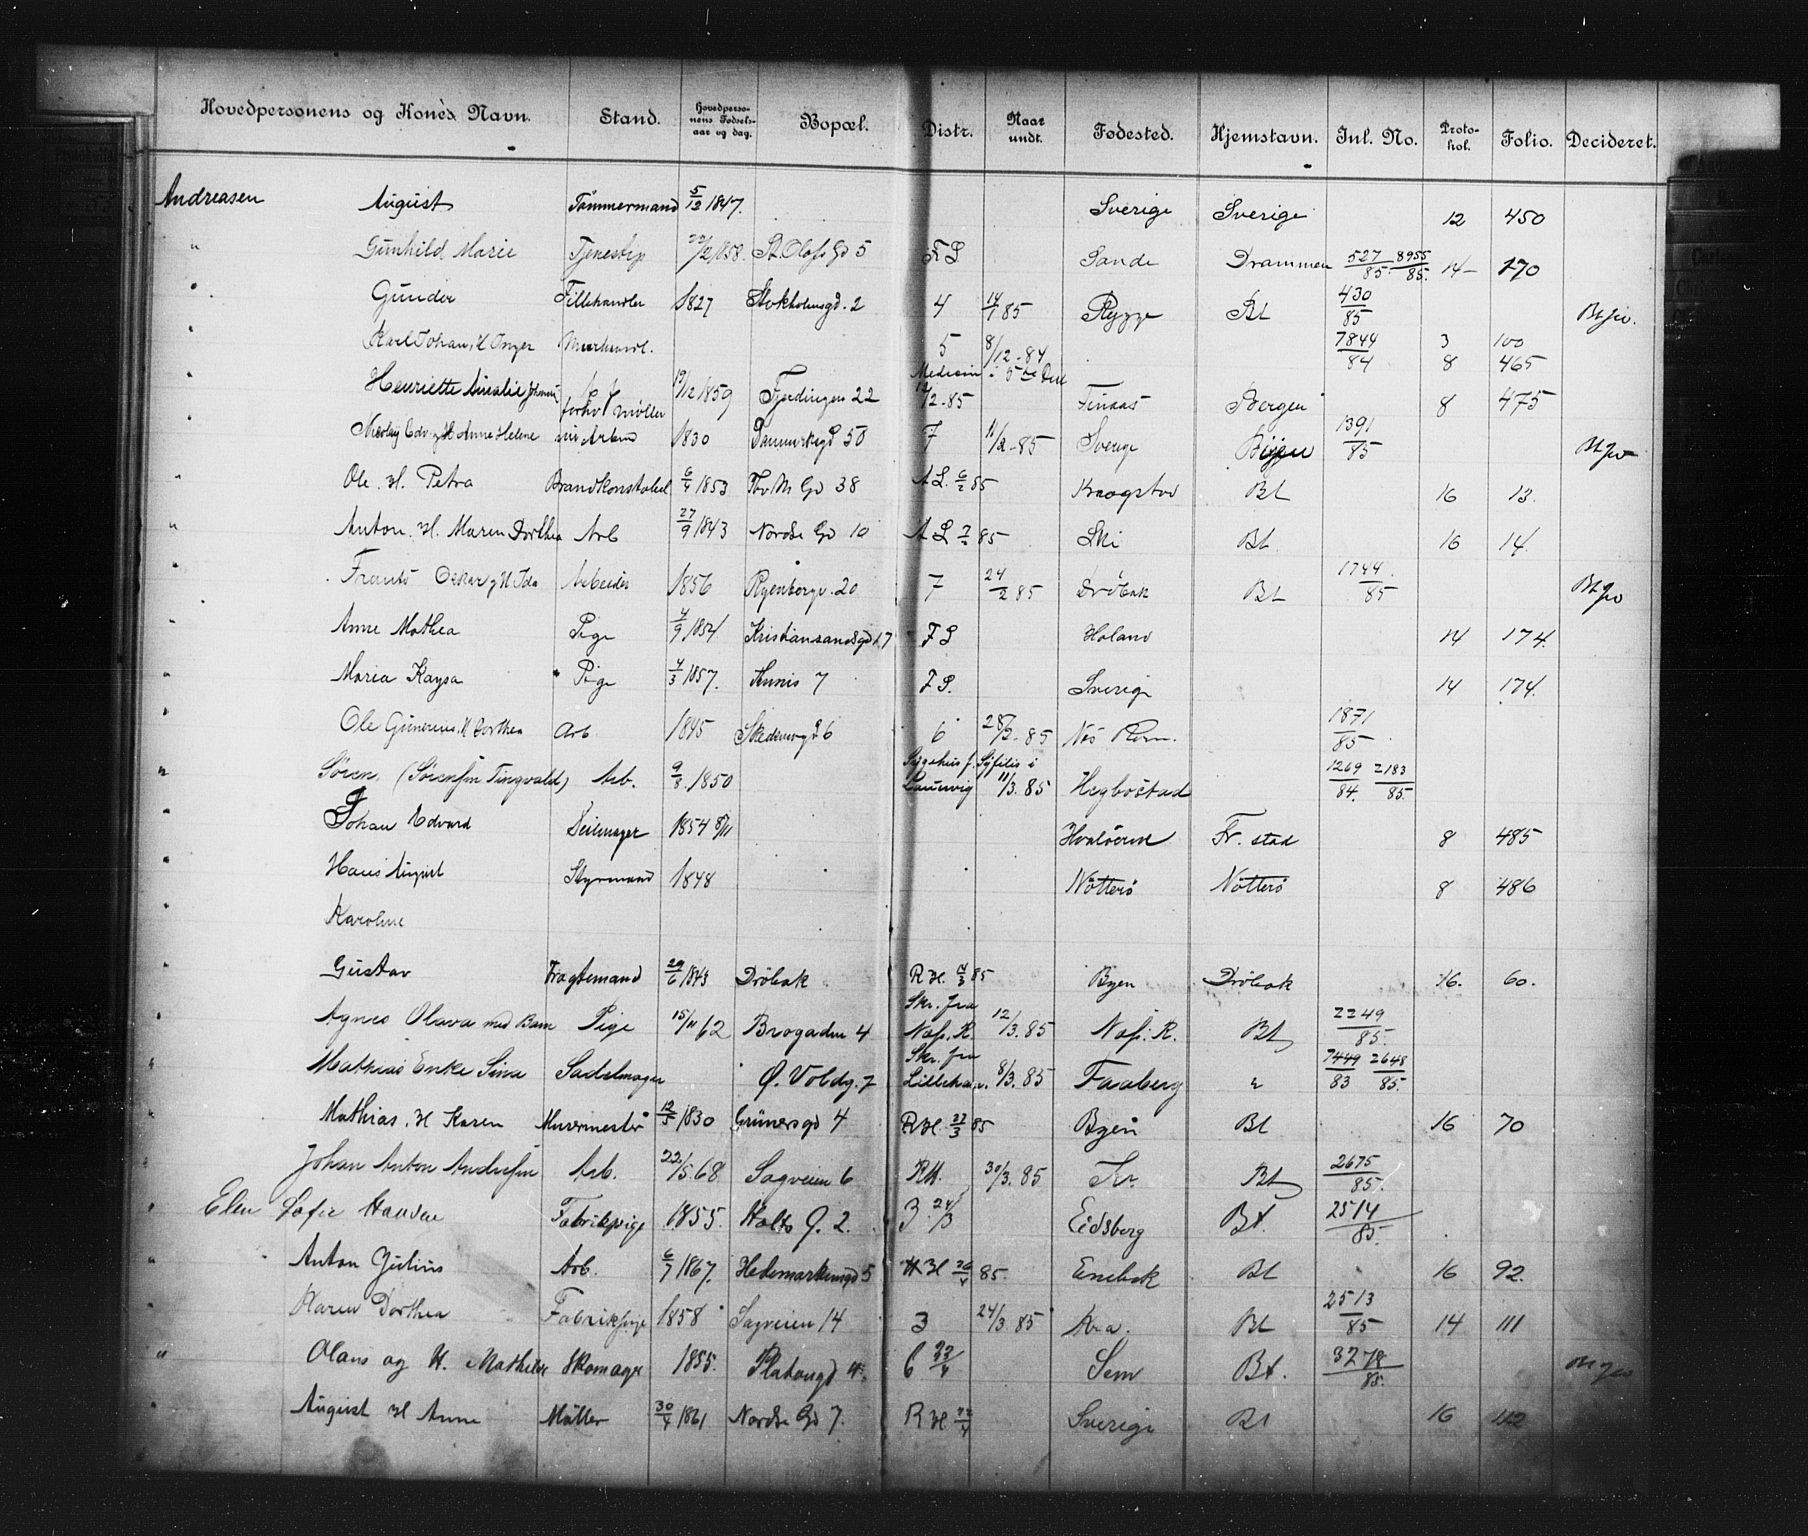 Hovedpersonens og Konès Navn. Stand. Hovedperso-nens Fødsels-aar og dag. Bopæl. Distr. Naar undt. Fødested. Hjemstavn. Inl. No. Proto-kol. Folio. Decideret.
Andreasen August Tømmermand 5/12 1847. Sverige Sverige 12 450
" Gunhild Marie Tjenestep /2 1858. St. Olafs Gd 5 F L Sande Drammen 527/85 8955/85. 14 170
" Gunder Fillehandler 1827 Stokholmsgd. 2 4 14/1 85 Rygge Bt 430/85
" Karl Johan, H. Inger 5 8/12-84 7844/84 3 100
8 465
" Henriette Amalie 19/12 1859 Fjerdingen 22 12/2-85 Finaas Bergen 8 475
Anne Helene 1830 Danmarksgd 50 7 11/2-85 Sverige Byen 1391/85
" Ole. H. Petra Brandkonstabel 6/4 1853 Thv M Gd 38 A L. 6/2 85 Kraagstad Bt 16 13.
" Anton. H. Maren Dorthea Arb 27/9 1843 Nordre Gd 10 A L 7/2 85 Ski Bt. 16 14.
" Frants Oskar og H Ida Arbeider 1856 Ryenbergv. 20 7 24/2 85 Drøbak Bt 1744/85
" Anne Mathea Pige 4/9 1854 Kristiansandsgd 17 F L Høland 14 174.
" Maria Kaysa " Pige 4/3 1857. 7 F L. Sverige 14 174.
" Ole H Dorthea Arb 1845 6 6 28/2-85 Nes Rom. 1871/85
" Søren, (Sørensen Tingvald) Arb. 9/8 1850 Sygehus f. Syfilis i Laurvig 11/3.85 Hegbøstad 1269/84. 2183/85.
" Johan Edvard Seilmager 1854 8/11 Hvaløerne Fr. stad 8 485
" Hans August Styrmand 1848 Nøtterø Nøtterø 8 486
" Karoline
" Gustav Fragtemand 29/6 1843 Drøbak R H. 11/3 85 Byen Drøbak 16. 60.
" Agnes Olava med Barn Pige 15/11 62 Brogaden 4 Skr. fra Næs. R. 12/3.85 Næs. R. Bt 2249/85.
" Mathias Enke Sina Sadelmager Ø. Voldg. 7 Skr. fra Lilleham. 8/3.85 Faaberg " 7449/83 2648/85.
" Mathias. H Karen Murermester 12/5 1830 Grünersgd 4 R H. 23/3 85 Byen Bt 16 70
" Johan Anton Andresen Arb. 22/5 68 Sagveien 6 R H. 30/3.85 Kr. Bt 2675/85.
" Elen Sofie Hansen Fabrikpige 1855. Holts G. 2. 3 24/3 Eidsberg Bt. 2514/85.
" Anton Julius Arb. 6/7 1867. Hedemarkensgd 5 H H 20/4 85. Enebak Bt 16 92.
" Karen Dorthea Fabrikpige 1858 Sagveien 14 3 24/3.85 Kra. Bt 2513/85 14 111
" Olaus og H. Mathilde Skomager 1855. Platousgd 4. 6 23/4 Sem Bt. 3278/85.
August H Anne Møller 30/4 1861 Nordre Gd 7. R H 22/4 Sverige Bt 16 112